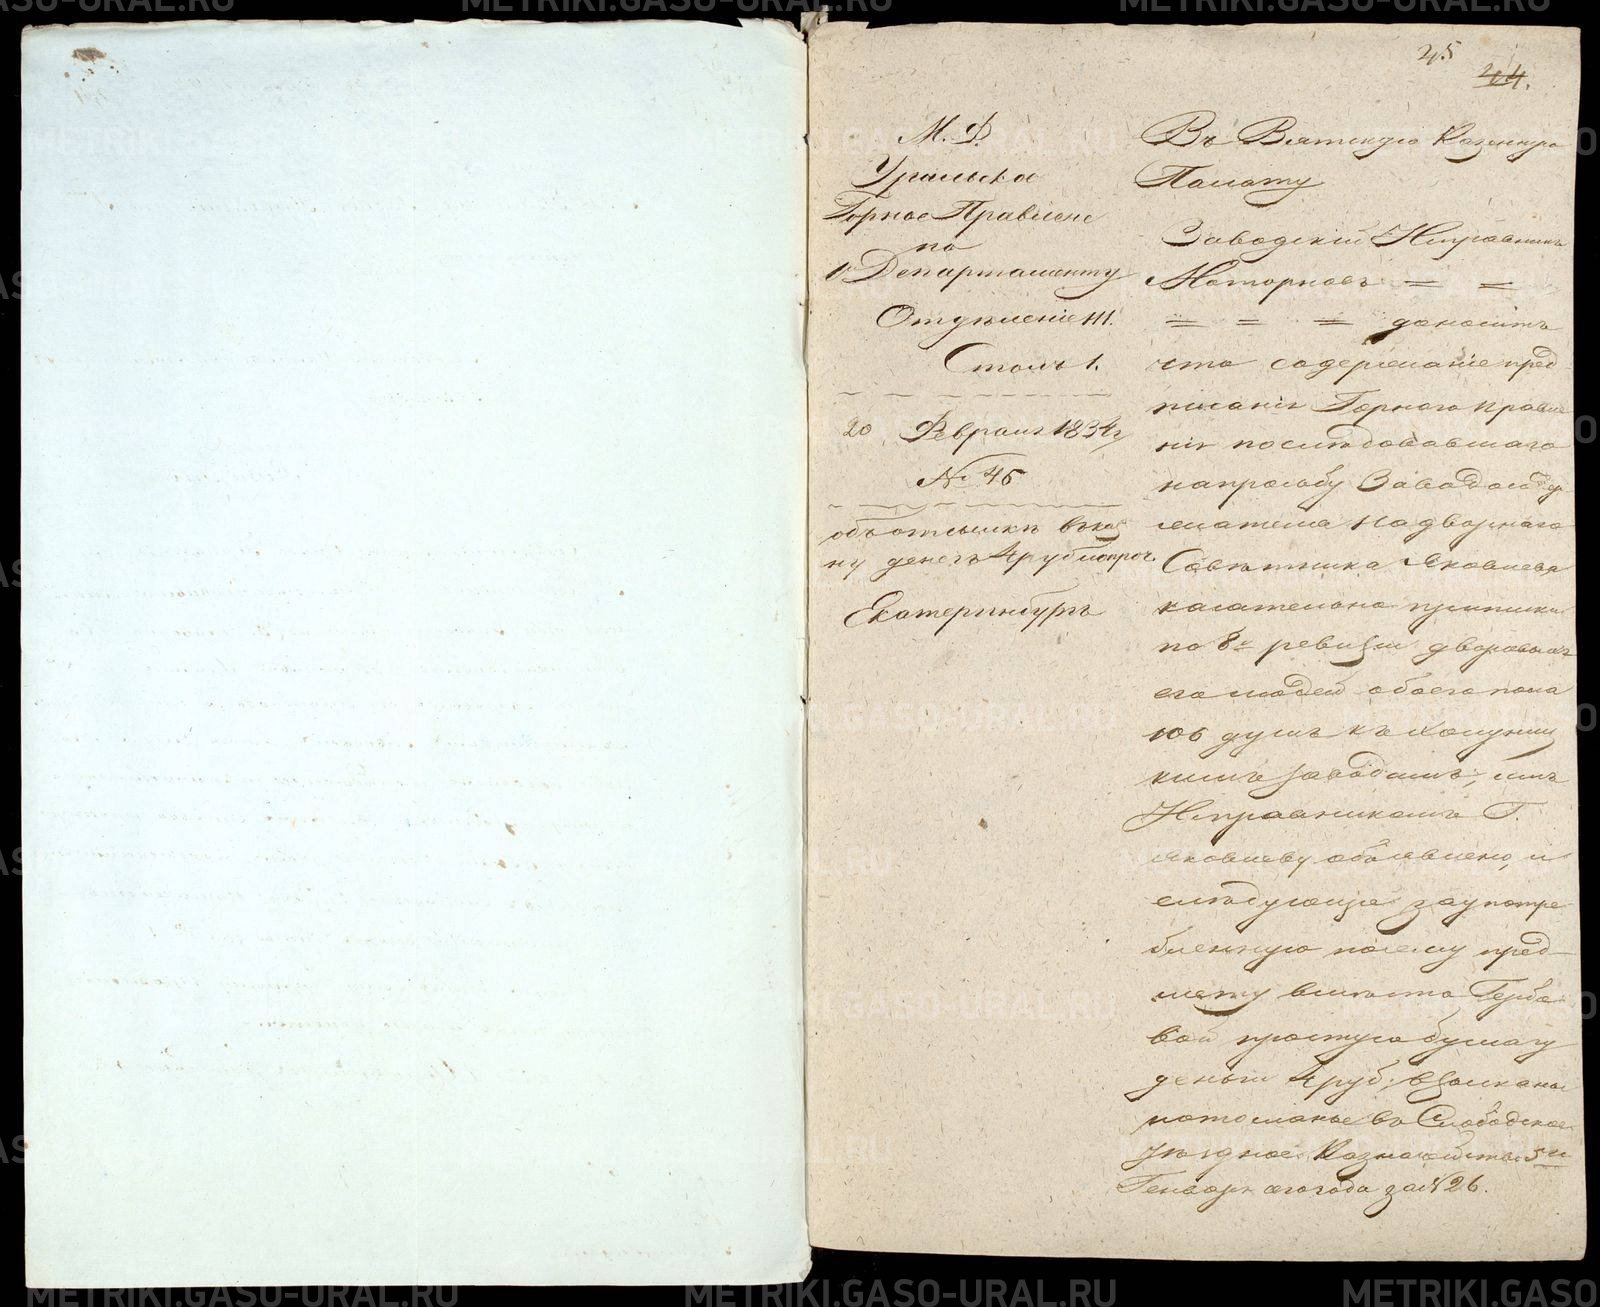 45
44.
М. Ф.
Уральска
Горное Правлене
по
Департаменту
Отдѣленіе III.
Столъ 1.
20 Февраля 1834 г
№ 45
объ отсылкѣ въ каз
ну денегъ 4 рубл. проч.
Екатеринбургъ
Въ Вятскую Казенную
Палату
Заводскій Исправникъ
Моторновъ = =
= = = доноситъ
что содержаніе пред
писанія Горнаго правле
нія последовавшаго
на прозьбу Заводосо
держателя Надворнаго
Совѣтника Яковлева
касательно приписки
по 8й ревизіи дворовыхъ
его людей обоего пола
106 душъ къ Холуниц
кимъ заводамъ, имъ
Исправникомъ Г.
Яковлеву объявлено, и
слѣдующія за употре
бленную по сему пред-
мету вмѣсто Гербо
вой простую бумагу
деньги 4 руб: взысканы
и отосланы въ Слободское
Уѣздное Казначейство 5го
Генваря сего года за № 26.
METRIKI.GASO-URAL.RU